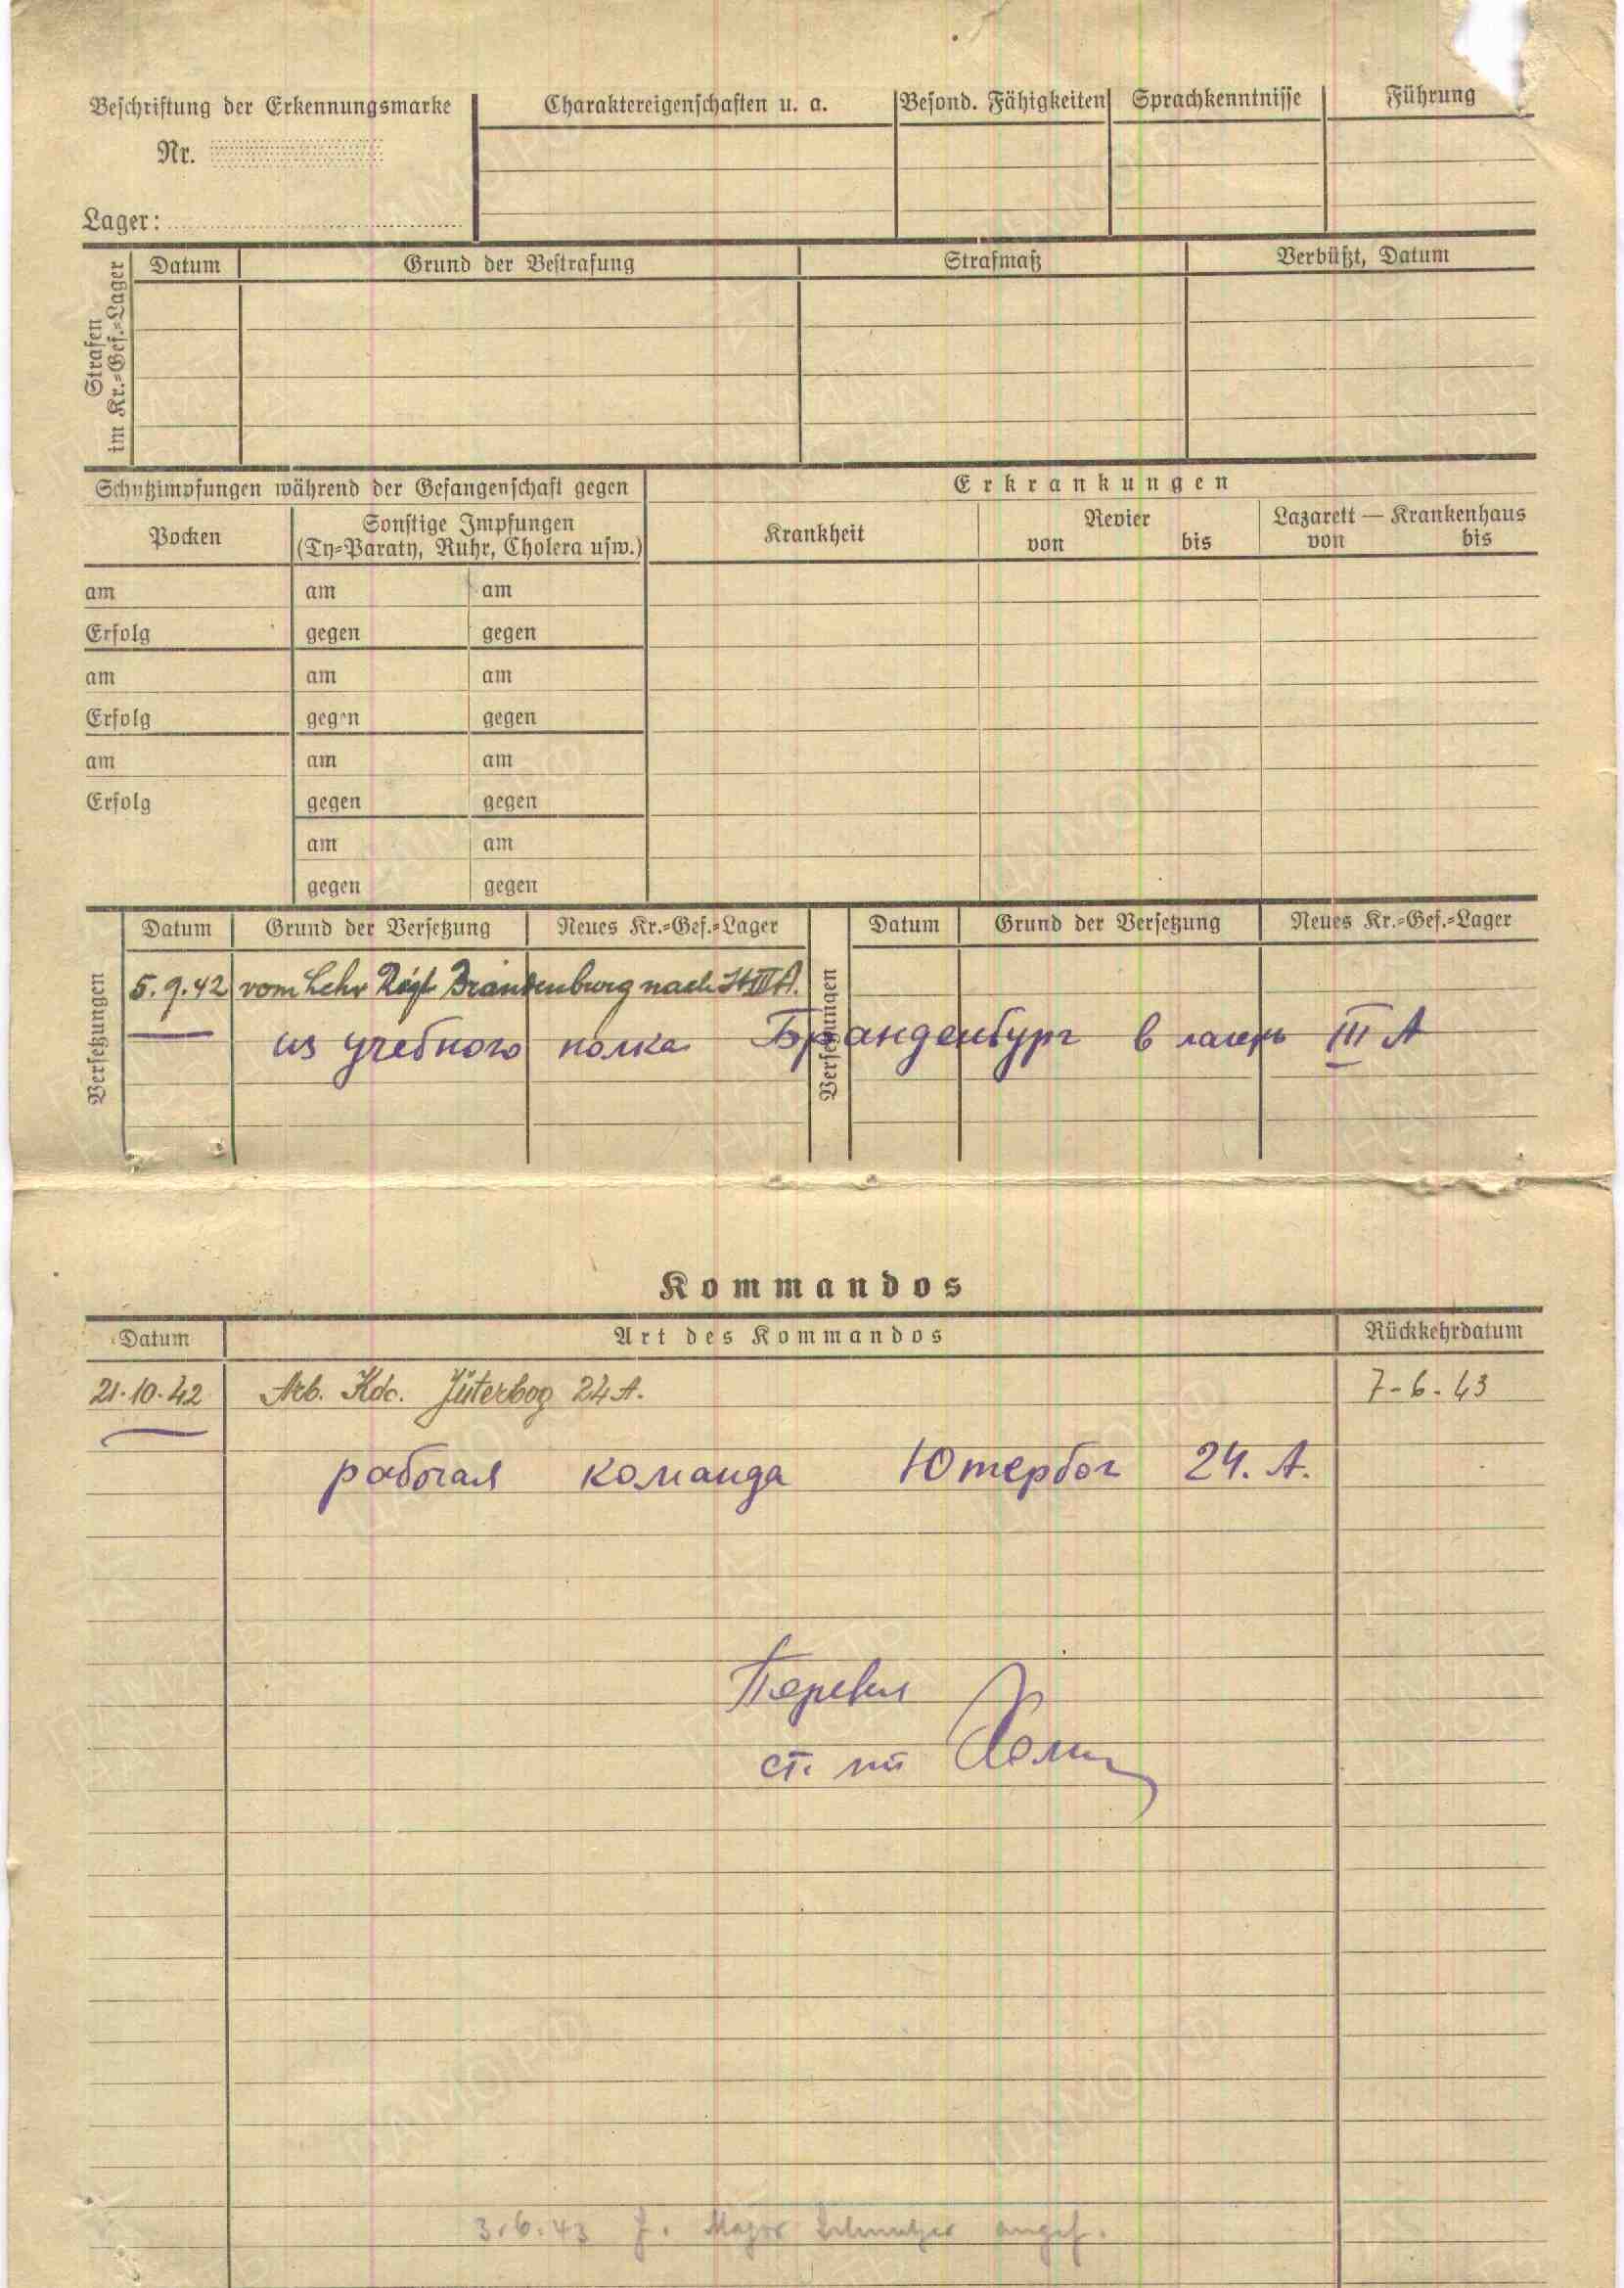 Beschriftung der Erkennungsmarke
Nr.
Lager:
Charaktereigenschaften u. a. Besond. Fähigkeiten Sprachkenntnisse Führung
Strafen im Kr.=Gef.=Lager
Datum Grund der Bestrafung Strafmaß Verbüßt, Datum
Schutzimpfungen während der Gefangenschaft gegen
Pocken
Sonstige Impfungen
(Ty=Paraty, Ruhr, Cholera usw.)
Erkrankungen
Krankheit Revier Lazarett — Krankenhaus
von bis von bis
am am am
Erfolg gegen gegen
am am am
Erfolg gegen gegen
am am am
Erfolg gegen gegen
am am
gegen gegen
Versetzungen
Datum Grund der Versetzung Neues Kr.=Gef.=Lager
Versetzungen
Datum Grund der Versetzung Neues Kr.=Gef.=Lager
5.9.42 vom Lehr Rgt Brandenburg nach St III A.
из учебного полка Бранденбург в лагерь III А
Kommandos
Datum Art des Kommandos Rückkehrdatum
21.10.42 Arb. Kdo. Jüterbog 24 A. 7-6-43
рабочая команда Ютербог 24. А.
Перевел
ст. лт
3.6.43 Major angef.